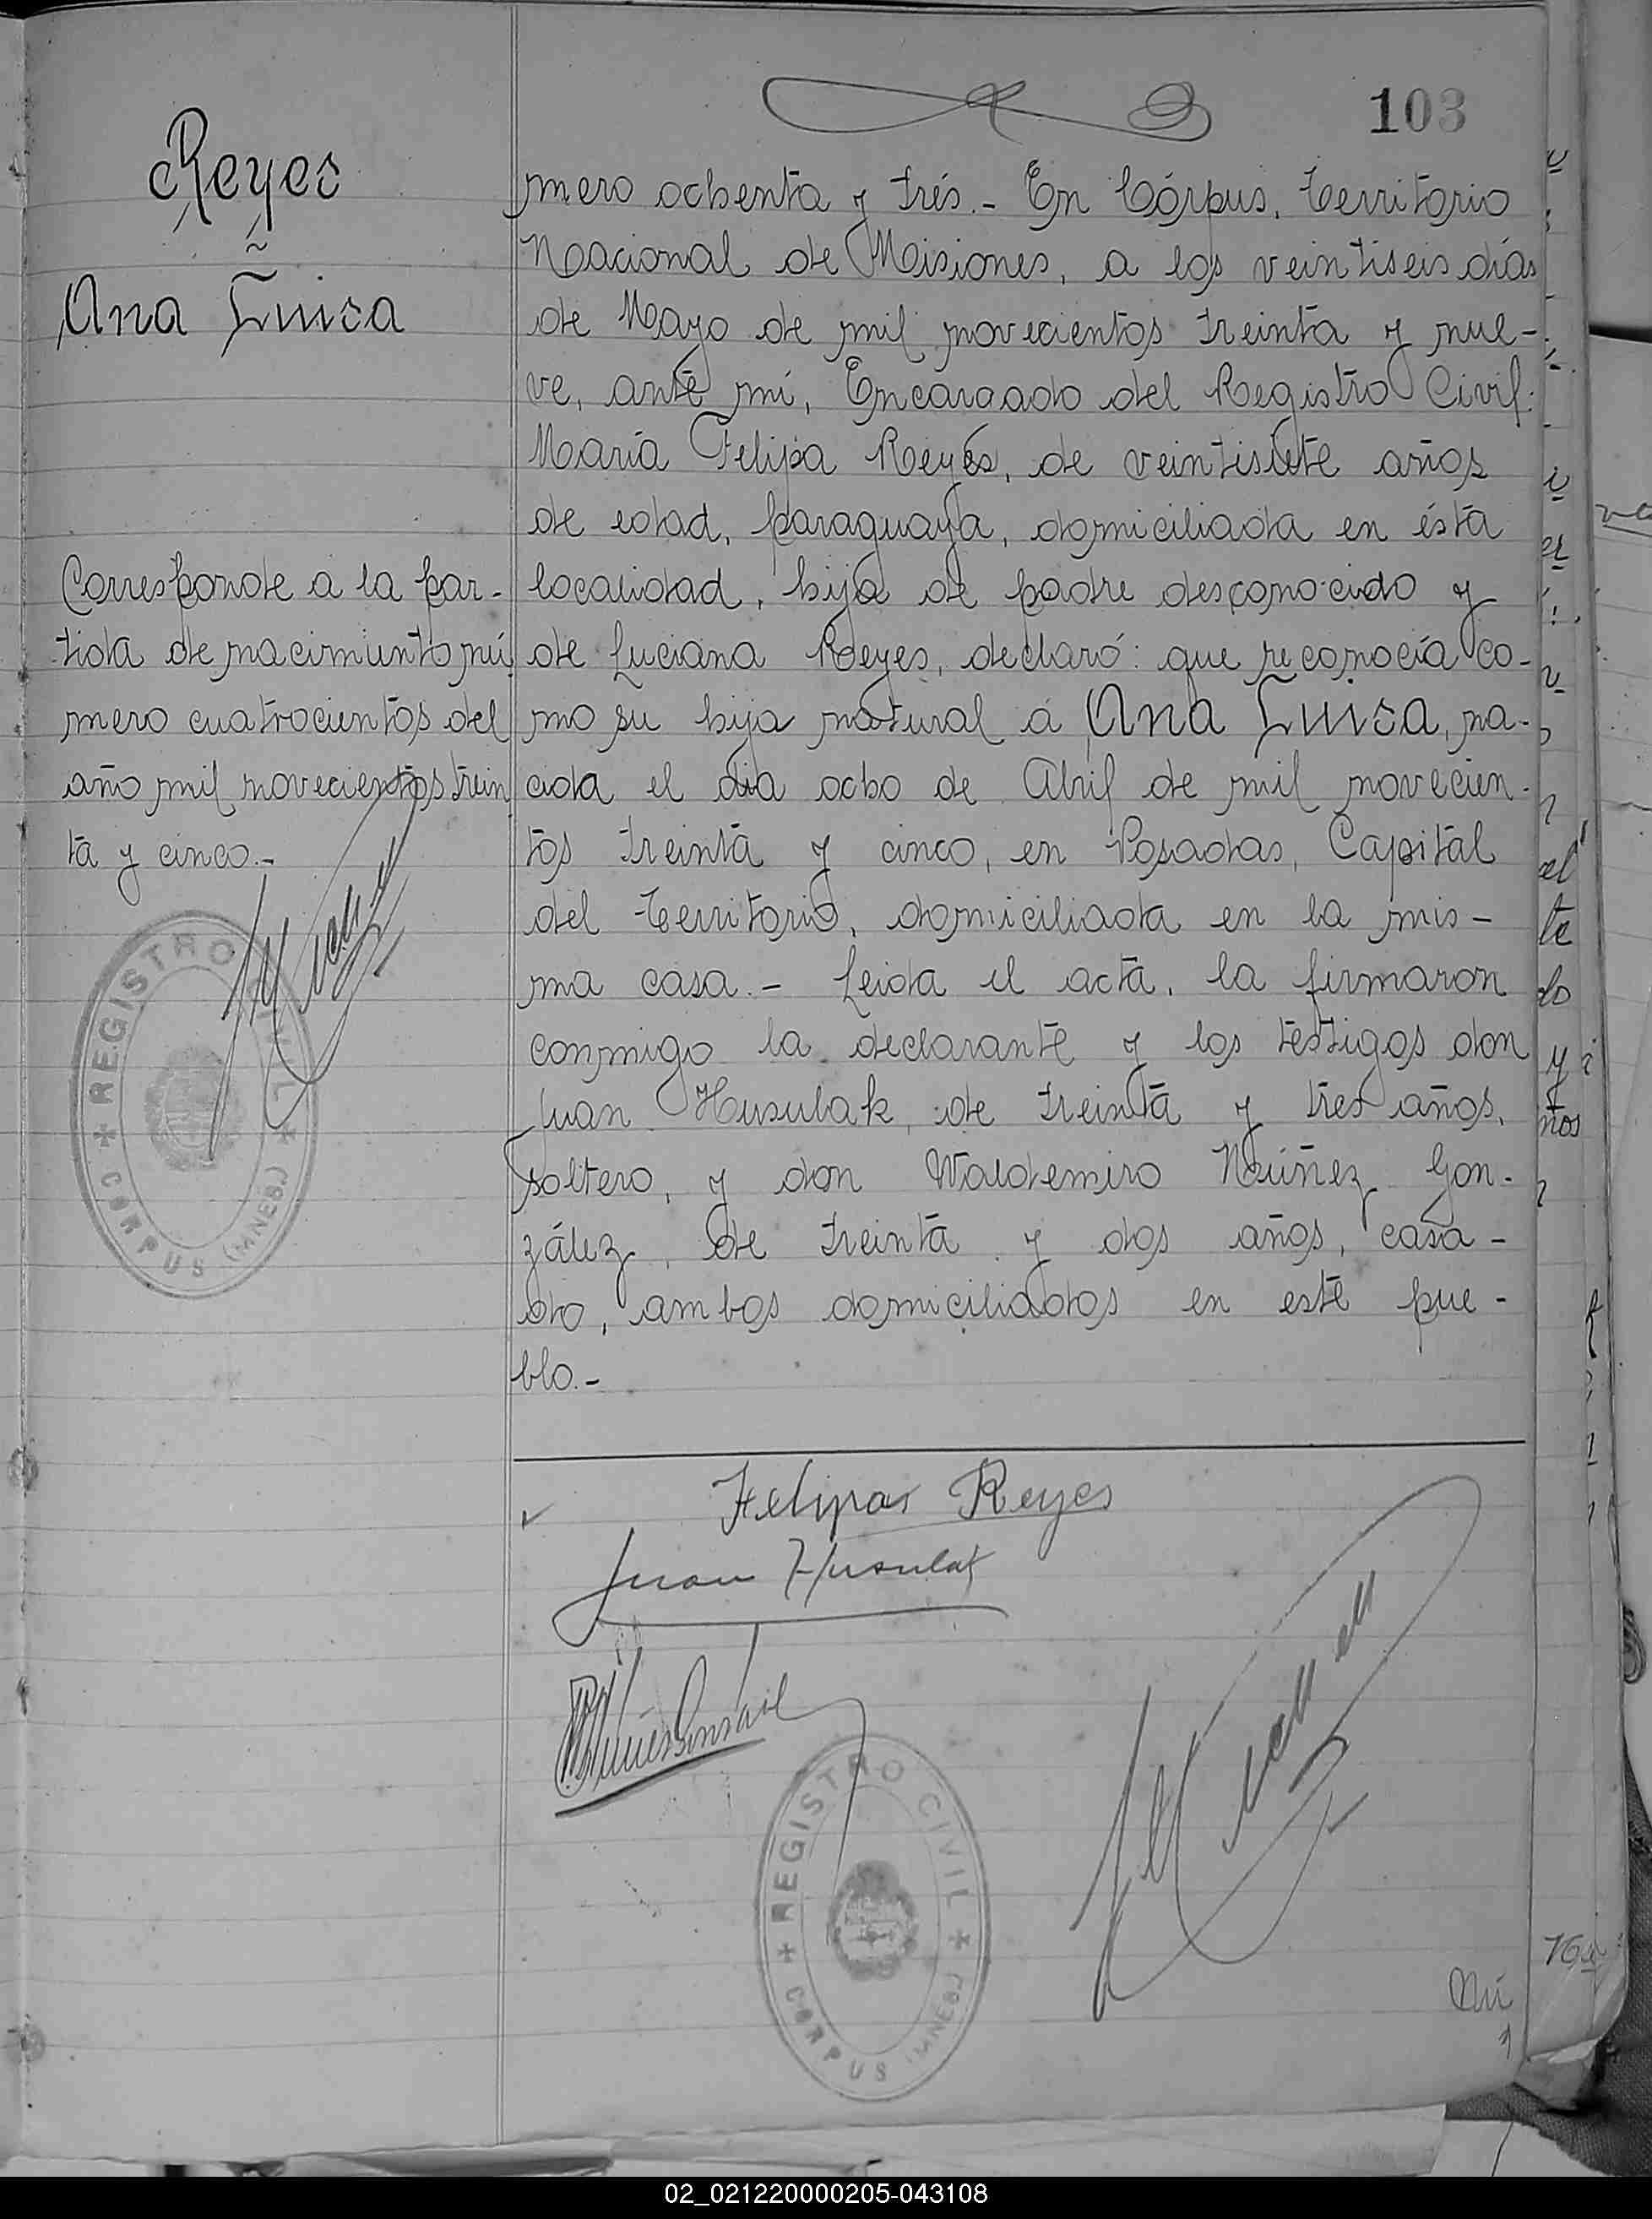 103
Reyes
Ana Luisa
Corresponde a la par-
tida de nacimiento nú
mero cuatrocientos del
año mil novecientos trein
ta y cinco.-
REGISTRO CIVIL
CORPUS (MNES)
mero ochenta y trés.- En Córpus, Territorio
Nacional de Misiones, a los veintiseis días
de Mayo de mil novecientos treinta y nue-
ve, ante mí, Encargado del Registro Civil:
María Felipa Reyes, de veintisiete años
de edad, paraguaya, domiciliada en ésta
localidad, hija de padre desconocido y
de Luciana Reyes, declaró: que reconocía co-
mo su hija natural á Ana Luisa, na-
cida el día ocho de Abril de mil novecien-
tos treinta y cinco, en Posadas, Capital
del Territorio, domiciliada en la mis-
ma casa.- Leida el acta, la firmaron
conmigo la declarante y los testigos don
Juan Husulak, de treinta y tres años,
soltero, y don Waldemiro Núñez Gon-
zález, de treinta y dos años, casa-
do, ambos domiciliados en este pue-
blo.-
Felipas Reyes
Juan Husulak
REGISTRO CIVIL
CORPUS (MNES)
Nú
02_021220000205-043108